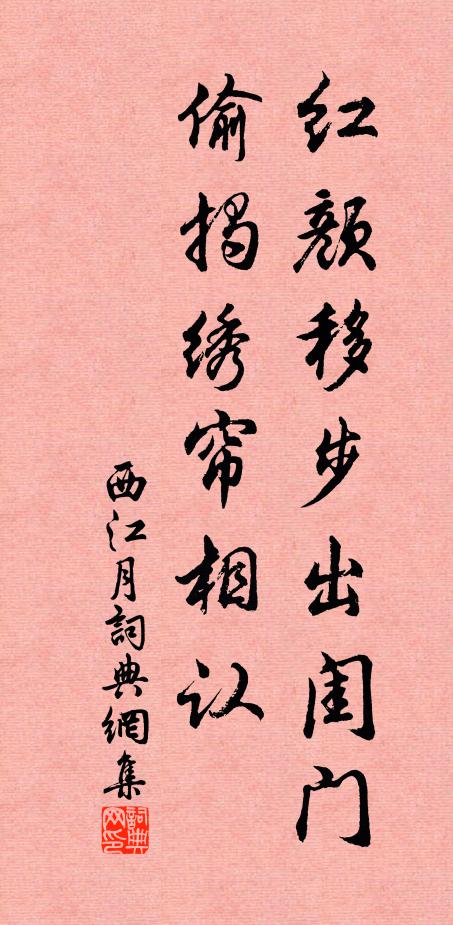 红颜移步出闺门
偷揭绣帘相认
西江月詞典網集
詞典网印